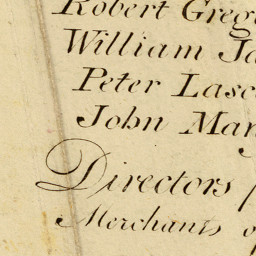 Robert Greg
William Ja
Peter Lasc
John Man
Directors
Merchants of